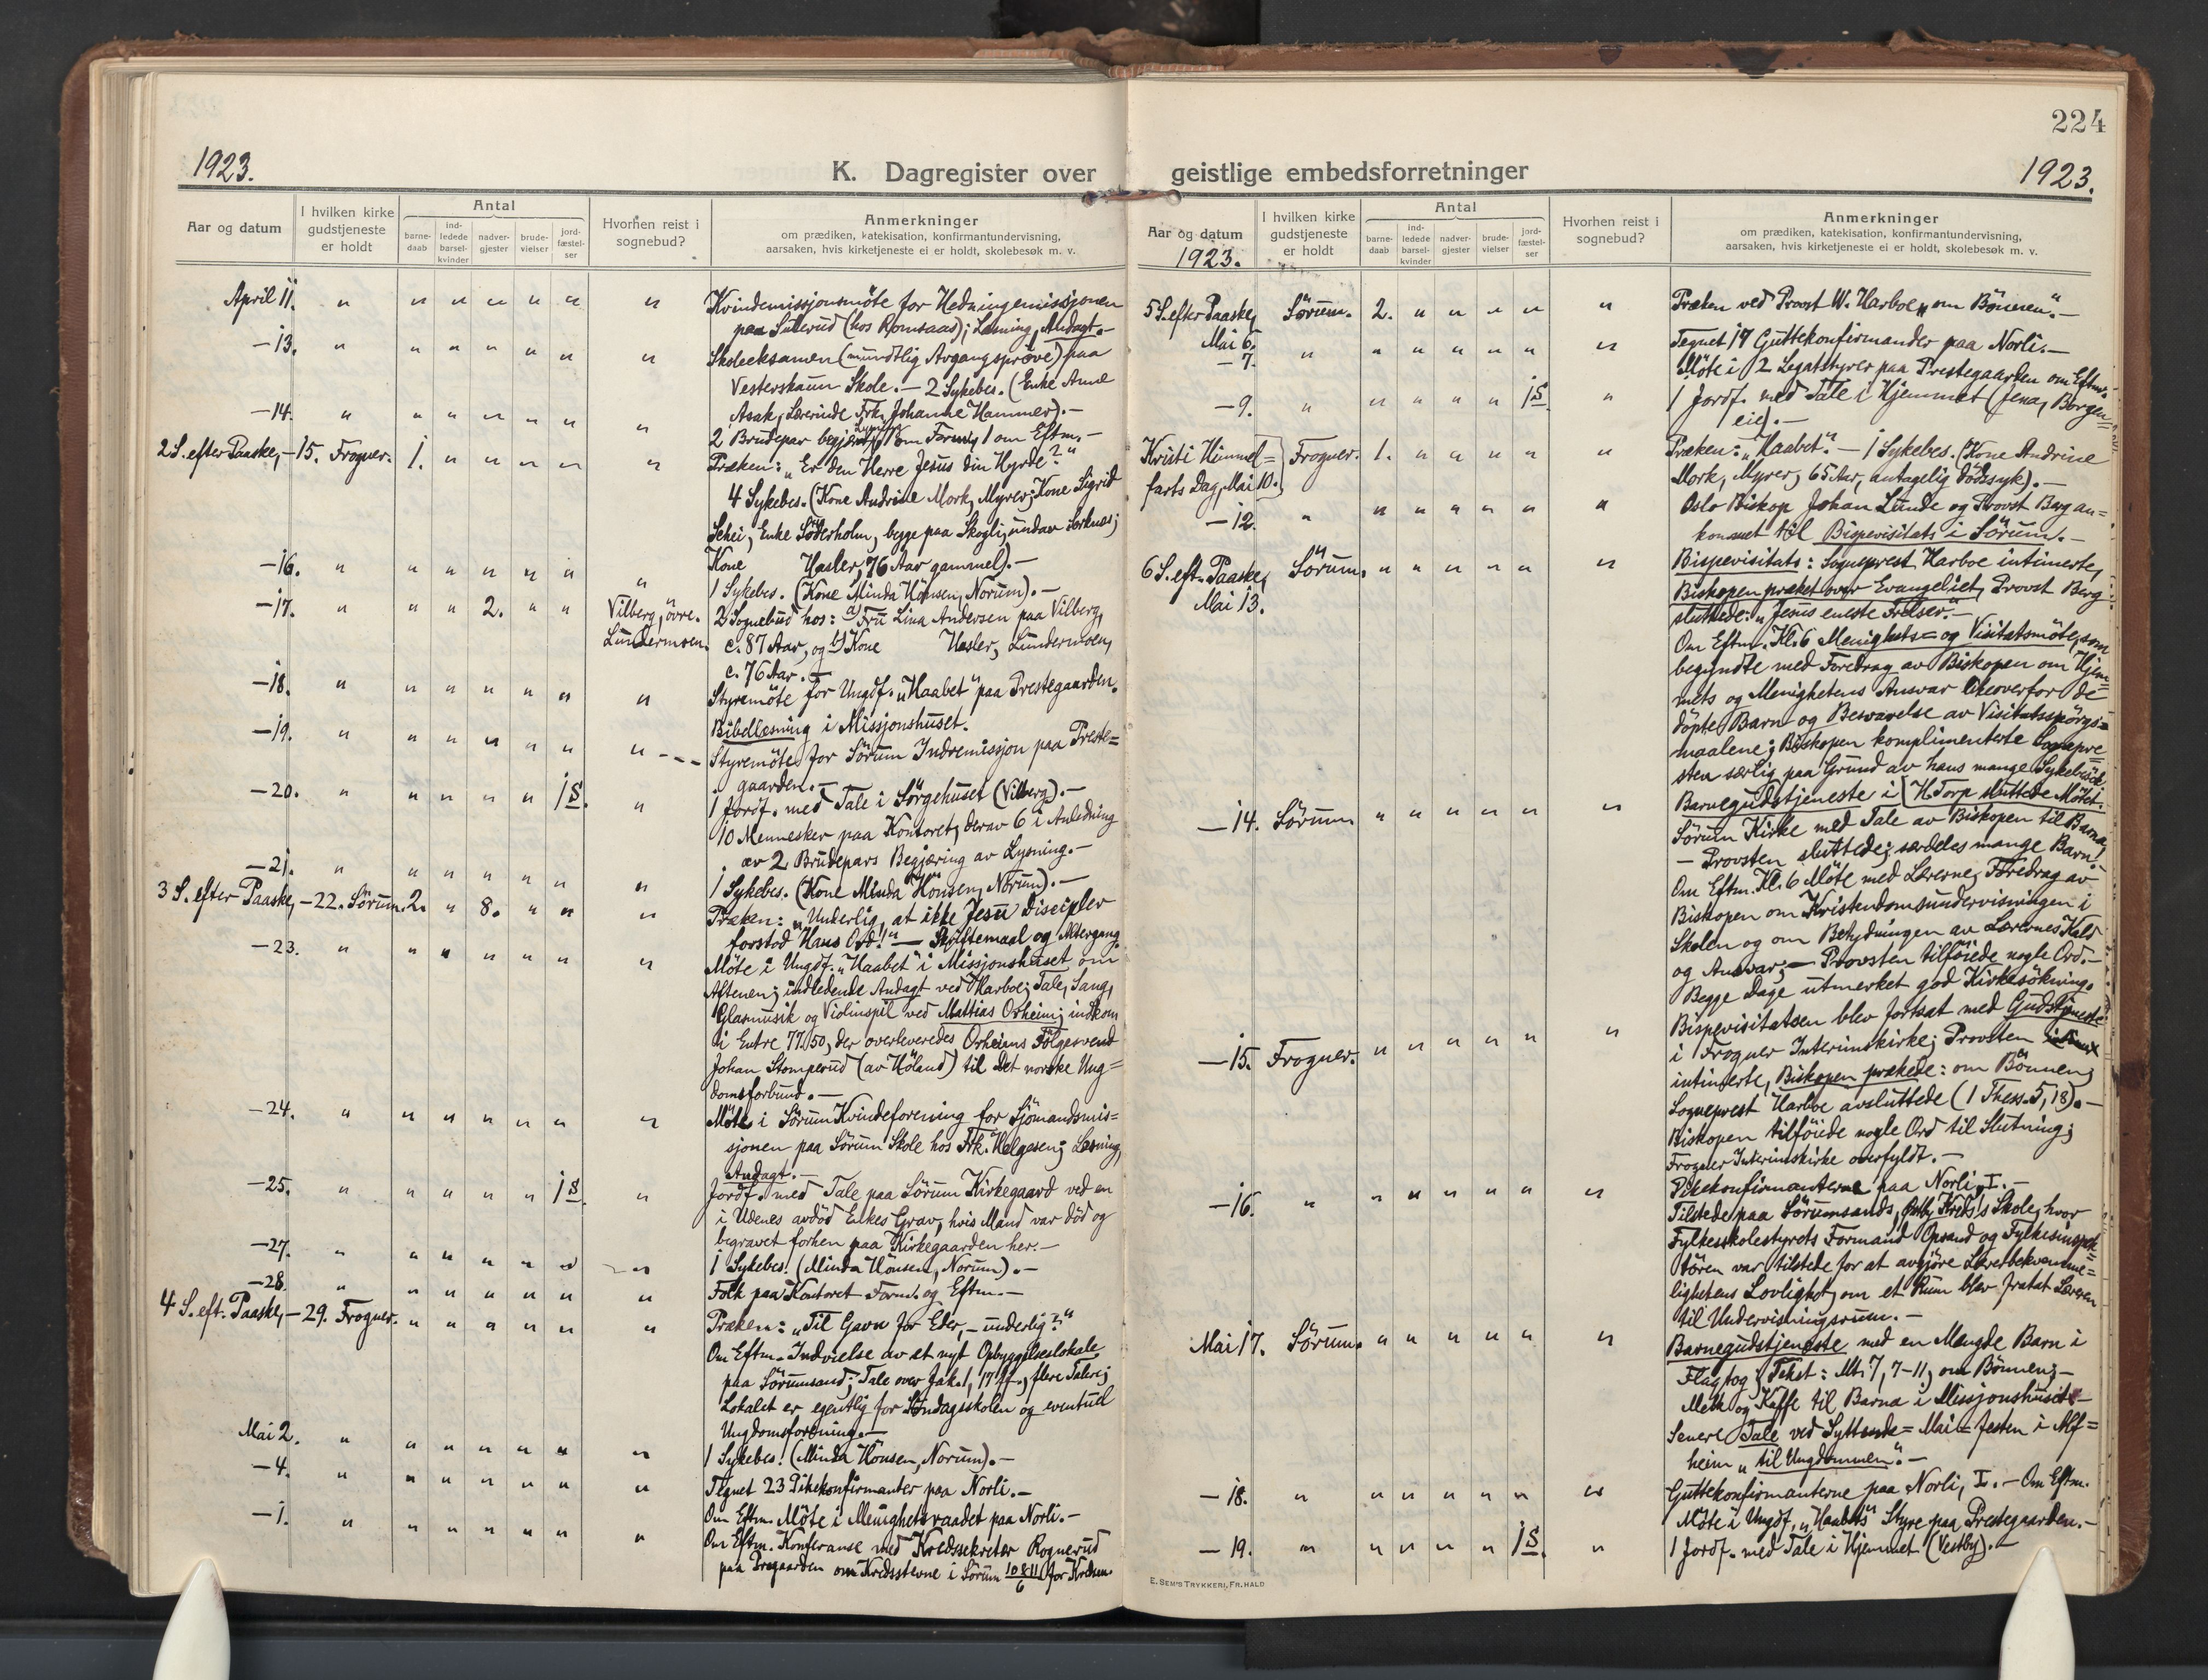 224
1923.
K. Dagregister over geistlige embedsforretninger
1923.
Aar og datum
I hvilken kirke gudstjeneste er holdt
Antal
barne-daab
ind-ledede barsel-kvinder
nadver-gjester
brude-vielser
jord-fæstel-ser
Hvorhen reist i sognebud?
Anmerkninger
om prædiken, katekisation, konfirmantundervisning,
aarsaken, hvis kirketjeneste ei er holdt, skolebesøk m. v.
April 11. " " " " " " " Kvindemissjonsmöte for Hedningemissjonen
paa Suterud (hos Romsaas); Læsning, Andagt.—
—13. " " " " " " " Skoleeksamen (mundtlig Avgangspröve) paa
Vesterskaun Skole.— 2 Sykebes. (Enke Anne
Asak, Lærerinde Frk. Johanne Hammer).—
—14. " " " " " " " 2 Brudepar om Form., 1 om Eftm.—
2 S. efter Paaske, —15. Frogner. 1. " " " " " Præken: „Er den Herre Jesus din Hyrde?"
4 Sykebes. (Kone Andrine Mork, Myrer; Kone Sigrid
Schei, Enke Söderholm, begge paa Skogli, undav Sorknæs;
Kone Hasler, 76 Aar gammel).—
—16. " " " " " " " 1 Sykebes. (Kone Minda Hönsen, Norum).—
—17. " " " 2. " " Vilberg, övre. 2 Sognebud hos: a) Fru Lina Andersen paa Vilberg,
Lundermoen. c. 87 Aar, og b) Kone Hasler, Lundermoen,
c. 76 Aar.—
—18. " " " " " " " Styremöte for Ungdf. „Haabet" paa Prestegaarden.
Bibellæsning i Missjonshuset.
—19. " " " " " " " Styremöte for Sörum Indremissjon paa Preste=
gaarden.—
—20. " " " " " 1 S. " 1 Jordf. med Tale i Sörgehuset (Vilberg).—
10 Mennesker paa Kontoret, derav 6 i Anledning
av 2 Brudepars Begjæring av Lysning.—
—21. " " " " " " " 1 Sykebes. (Kone Minda Hönsen, Norum).—
3 S. efter Paaske, —22. Sörum. 2. " 8. " " " Præken: „Underlig, at ikke Jesu Disciple
forstod Hans Ord!" — Skriftemaal og Altergang.
—23. " " " " " " " Möte i Ungdf. „Haabet" i Missjonshuset om
Aftenen; indledende Andagt ved Harboe; Tale, Sang,
Glasmusik og Violinspil ved Mattias Orheim; indkom
i Entre 77.50, der overleveredes Orheims Fölgesvend
Johan Stomperud (av Höland) til Det norske Ung=
domsforbund.—
—24. " " " " " " " Möte i Sörum Kvindeforening for Sjömandsmis=
sjonen paa Sörum Skole hos Frk. Helgesen; Læsning,
Andagt.—
—25. " " " " " 1 S. " Jordf. med Tale paa Sörum Kirkegaard ved en
i Udenes avdöd Enkes Grav, hvis Mand var död og
begravet forhen paa Kirkegaarden her.—
—27. " " " " " " " 1 Sykebes! (Minda Hönsen, Norum).—
—28. " " " " " " " Folk paa Kontoret Form. og Eftm.—
4 S. eft. Paaske, —29. Frogner. " " " " " " Præken: „Til Gavn for Eder, — underlig?"
Om Eftm. Indvielse av et nyt Opbyggelseslokale
paa Sörumsand; Tale over Jak. 1, 17 ff., flere Talere;
Lokalet er egentlig for Söndagsskolen og eventuel
Ungdomsforening.—
Mai 2. " " " " " " " 1 Sykebes! (Minda Hönsen, Norum).—
—4. " " " " " " " Tegnet 23 Pikekonfirmanter paa Norli.—
Om Eftm. Möte i Menighetsraadet paa Norli.—
—1. " " " " " " " Om Eftm. Konferanse med Kredssekretær Rognerud
paa Prgaarden om Kredsstevne i Sörum 10 & 11/6 for Kredsen.
Aar og datum
1923.
I hvilken kirke gudstjeneste er holdt
Antal
barne-daab
ind-ledede barsel-kvinder
nadver-gjester
brude-vielser
jord-fæstel-ser
Hvorhen reist i sognebud?
Anmerkninger
om prædiken, katekisation, konfirmantundervisning,
aarsaken, hvis kirketjeneste ei er holdt, skolebesøk m. v.
5 S. efter Paaske, Sörum. 2. " " " " " Præken ved Provst W. Harboe „om Bönnen".—
Mai 6.
—7. " " " " " " " Tegnet 19 Guttekonfirmander paa Norli.—
Möte i 2 Legatstyrer paa Prestegaarden om Eftm.
—9. " " " " " 1 S. " 1 Jordf. med Tale i Hjemmet (Jena, Borgen
eie).—
Kristi Himmel= Frogner. 1. " " " " " Præken: „Haabet".— 1 Sykebes. (Kone Andrine
farts Dag, Mai 10. Mork, Myrer, 65 Aar, antagelig dödssyk).—
—12. " " " " " " " Oslo Biskop Johan Lunde og Provst Berg an=
kommet til Bispevisitats i Sörum.—
6 S. eft. Paaske, Sörum. " " " " " " Bispevisitats: Sogneprest Harboe intimerte,
Mai 13. Biskopen præket over Evangeliet, Provst Berg
sluttede: „Jesus eneste Frelser".—
Om Eftm. Kl. 6 Menighets= og Visitatsmöte, som
begyndte med Foredrag av Biskopen om Hjem=
mets og Menighetens Ansvar likeoverfor de
döpte Barn og Besvarelse av Visitatsspörgs=
maalene; Biskopen komplimenterte Sognepre
sten særlig paa Grund av hans mange Sykebesök.
H. Torp sluttede Mötet.
—14. Sörum " " " " " " Barnegudstjeneste i
Sörum Kirke med Tale av Biskopen til Barna,
— Provsten sluttede; særdeles mange Barn!—
Om Eftm. Kl. 6 Möte med Lærerne, Foredrag av
Biskopen om Kristendomsundervisningen i
Skolen og om Betydningen av Lærernes Kald
og Ansvar;— Provsten tilföiede nogle Ord.—
Begge Dage utmerket god Kirkesökning.
—15. Frogner. " " " " " " Bispevisitatsen blev fortsat med Gudstjeneste
i Frogner Interimskirke; Provsten
intimerte, Biskopen prækede: om Bönnen;
Sogneprest Harboe avsluttede (1 Thess. 5, 18).—
Biskopen tilföiede nogle Ord til Slutning;
Frogner Interimskirke overfyldt.—
—16. " " " " " " " Pikekonfirmanterne paa Norli, I.—
Tilstede paa Sörumsands, Östby Kreds's Skole, hvor
Fylkesskolestyrets Formand Opsand og Fylkesinspek=
tören var tilstede for at avgjöre Lærerbekvemme=
lighetens Lovlighet, om et Rum blev fratat Læreren
til Undervisningsrum.—
Mai 17. Sörum. " " " " " " Barnegudstjeneste med en Mengde Barn i
Flagtog; Tekst: Mt. 7, 7-11, om Bönnen;—
Melk og Kaffe til Barna i Missjonshuset—
Senere Tale ved Syttende=Mai=festen i Alf=
heim „til Ungdommen".—
—18. " " " " " " " Guttekonfirmanterne paa Norli, I.— Om Eftm.
Möte i Ungdf. „Haabet's" Styre paa Prestegaarden.—
—19. " " " " " 1 S. " 1 Jordf. med Tale i Hjemmet (Vestby).—
E. SEM'S TRYKKERI, FR.HALD